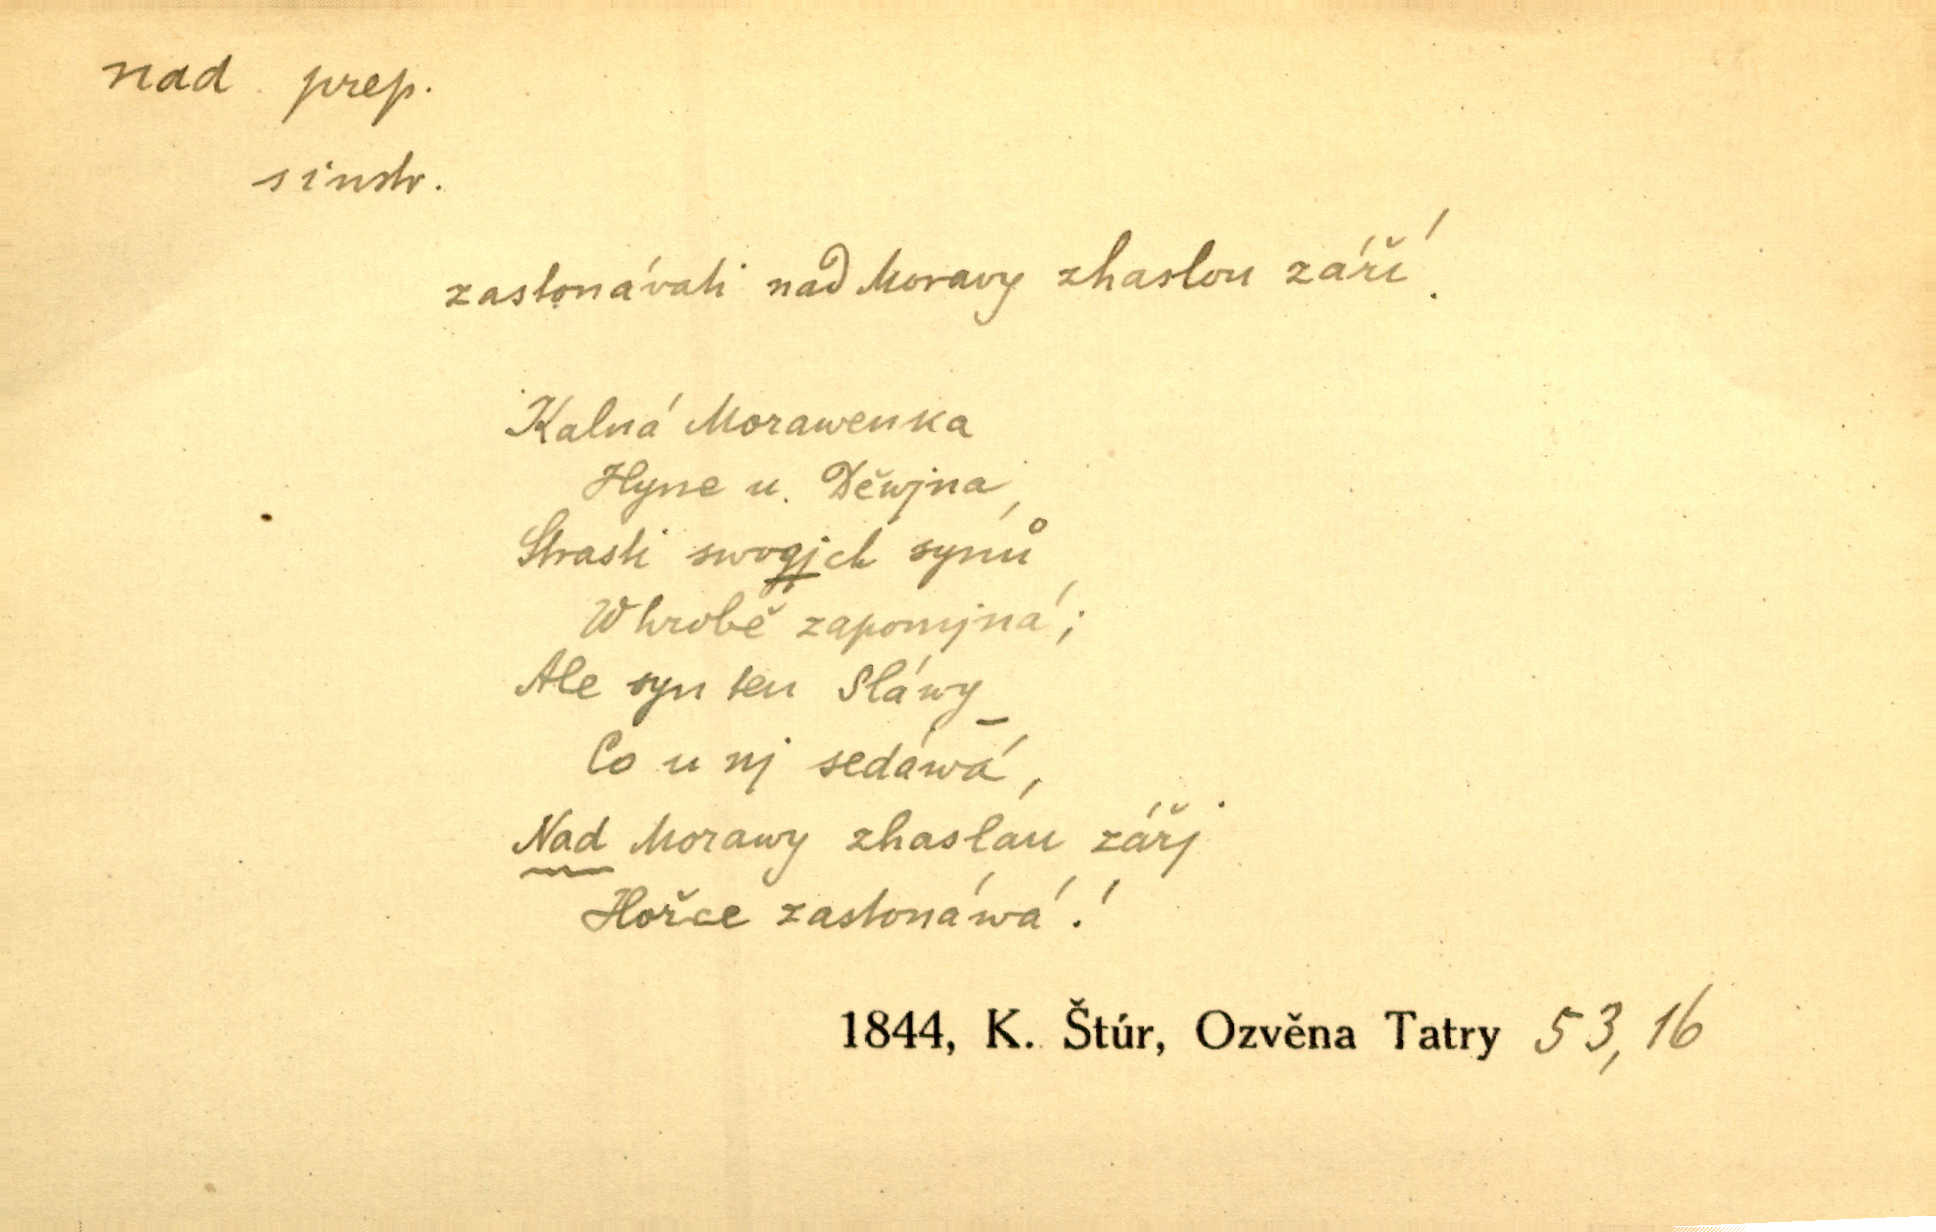 nad prep.
s instr.
zastonávati nad Moravy zhaslou září.
Kalná Morawenka
Hyne u Děwjna,
Strasti swogjch synů
W hrobě zapomjná;
Ale syn ten Sláwy
Co u nj sedáwá,
Nad Morawy zhaslau zářj
Hořce zastonáwá!
1844, K. Štúr, Ozvěna Tatry 53,16